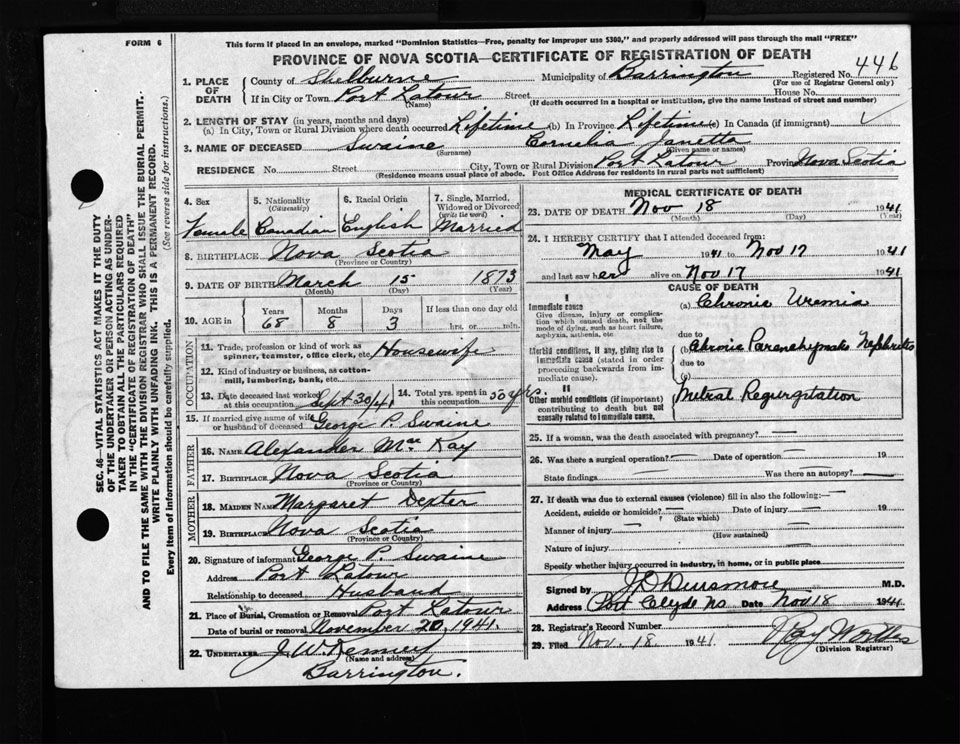 FORM 6
This form if placed in an envelope, marked "Dominion Statistics—Free, penalty for improper use $300," and properly addressed will pass through the mail "FREE"
PROVINCE OF NOVA SCOTIA—CERTIFICATE OF REGISTRATION OF DEATH
1. PLACE OF DEATH County of Shelburne Municipality of Barrington Registered No. 446
(For use of Registrar General only)
If in City or Town Port Latour Street House No.
(Name) (If death occurred in a hospital or institution, give the name instead of street and number)
2. LENGTH OF STAY (in years, months and days)
(a) In City, Town or Rural Division where death occurred Lifetime (b) In Province Lifetime (c) In Canada (if immigrant)
3. NAME OF DECEASED Swaine Cornelia Janetta
Surname (Given name or names)
RESIDENCE No. Street City, Town or Rural Division Port Latour Province Nova Scotia
(Residence means usual place of abode. Post Office Address for residents in rural parts not sufficient)
4. Sex Female
5. Nationality (Citizenship) Canadian
6. Racial Origin English
7. Single, Married, Widowed or Divorced (write the word) Married
8. BIRTHPLACE Nova Scotia
(Province or Country)
9. DATE OF BIRTH March 15 1873
(Month) (Day) (Year)
10. AGE in Years Months Days If less than one day old
68 8 3 hrs. or min.
OCCUPATION
11. Trade, profession or kind of work as spinner, teamster, office clerk, etc. Housewife
12. Kind of industry or business, as cotton-mill, lumbering, bank, etc.
13. Date deceased last worked at this occupation Sept 30/41
14. Total yrs. spent in this occupation 50 yrs.
15. If married give name of wife or husband of deceased George P. Swaine
FATHER
16. NAME Alexander MacKay
17. BIRTHPLACE Nova Scotia
(Province or Country)
MOTHER
18. MAIDEN NAME Margaret Dexter
19. BIRTHPLACE Nova Scotia
(Province or Country)
20. Signature of informant George P. Swaine
Address Port Latour
Relationship to deceased Husband
21. Place of Burial, Cremation or Removal Port Latour
Date of burial or removal November 20, 1941.
22. UNDERTAKER J. W.
(Name and address)
Barrington.
MEDICAL CERTIFICATE OF DEATH
23. DATE OF DEATH Nov 18 1941
(Month) (Day) (Year)
24. I HEREBY CERTIFY that I attended deceased from:
May 1941 to Nov 17 1941
and last saw her alive on Nov 17 1941
CAUSE OF DEATH
Immediate cause
Give disease, injury or complication which caused death, not the mode of dying, such as heart failure, asphyxia, asthenia, etc
(a) Chronic Uremia
due to
Morbid conditions, if any, giving rise to immediate cause (stated in order proceeding backwards from immediate cause).
(b) Chronic Parenchymato Nephritis
due to
(c)
Other morbid conditions (if important) contributing to death but not causally related to immediate cause.
Mitral Regurgitation
25. If a woman, was the death associated with pregnancy? —
26. Was there a surgical operation? — Date of operation — 19
State findings Was there an autopsy? —
27. If death was due to external causes (violence) fill in also the following:—
Accident, suicide or homicide? — Date of injury — 19
(State which)
Manner of injury —
(How sustained)
Nature of injury —
Specify whether injury occurred in industry, in home, or in public place
Signed by M.D.
Address Port Clyde NS Date Nov 18 1941
28. Registrar's Record Number
29. Filed Nov. 18 1941
(Division Registrar)
SEC. 46—VITAL STATISTICS ACT MAKES IT THE DUTY
OF THE UNDERTAKER OR PERSON ACTING AS UNDER-
TAKER TO OBTAIN ALL THE PARTICULARS REQUIRED
IN THE "CERTIFICATE OF REGISTRATION OF DEATH"
AND TO FILE THE SAME WITH THE DIVISION REGISTRAR WHO SHALL ISSUE THE BURIAL PERMIT.
WRITE PLAINLY WITH UNFADING INK. THIS IS A PERMANENT RECORD.
Every item of information should be carefully supplied. (See reverse side for instructions.)